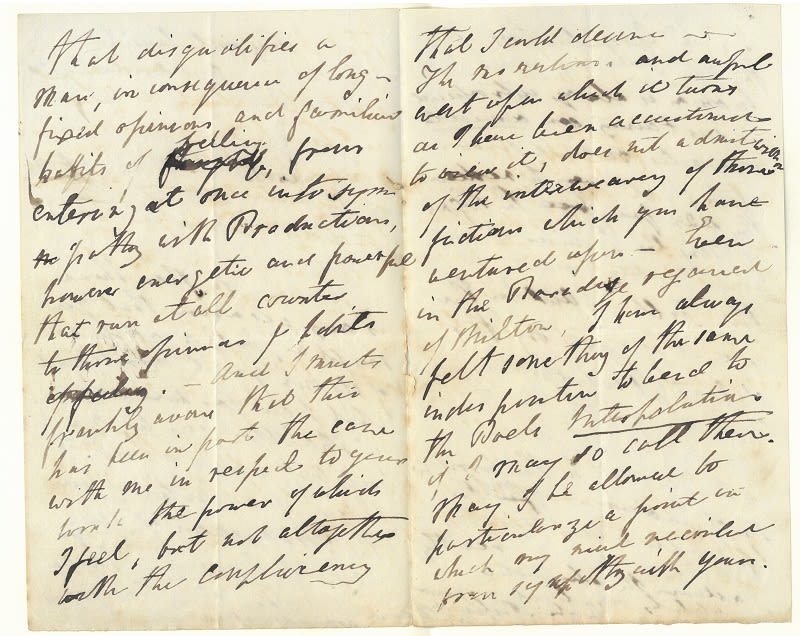 that disqualifies a
man, in consequence of long-
fixed opinions and familiar
habits of feeling, from
entering at once into sym
pathy with Productions,
however energetic and powerful
that run at all counter
to those opinions & habits
of feeling. - And I must
frankly avow that this
has been in part the case
with me in respect to your
work the power of which
I feel, but not altogether
with the complacency
that I could desire
The and awful
event upon which it turns
as I have been accustomed
to view it, does not admit with me
of the interweaving of those
fictions which you have
ventured upon - Even
in the Paradise regained
of Milton, I have always
felt something of the same
indisposition to bend to
the Poets Interpolations
if I may so call them.
May I be allowed to
particularize a point in
which my mind recoiled
from sympathy with yours.